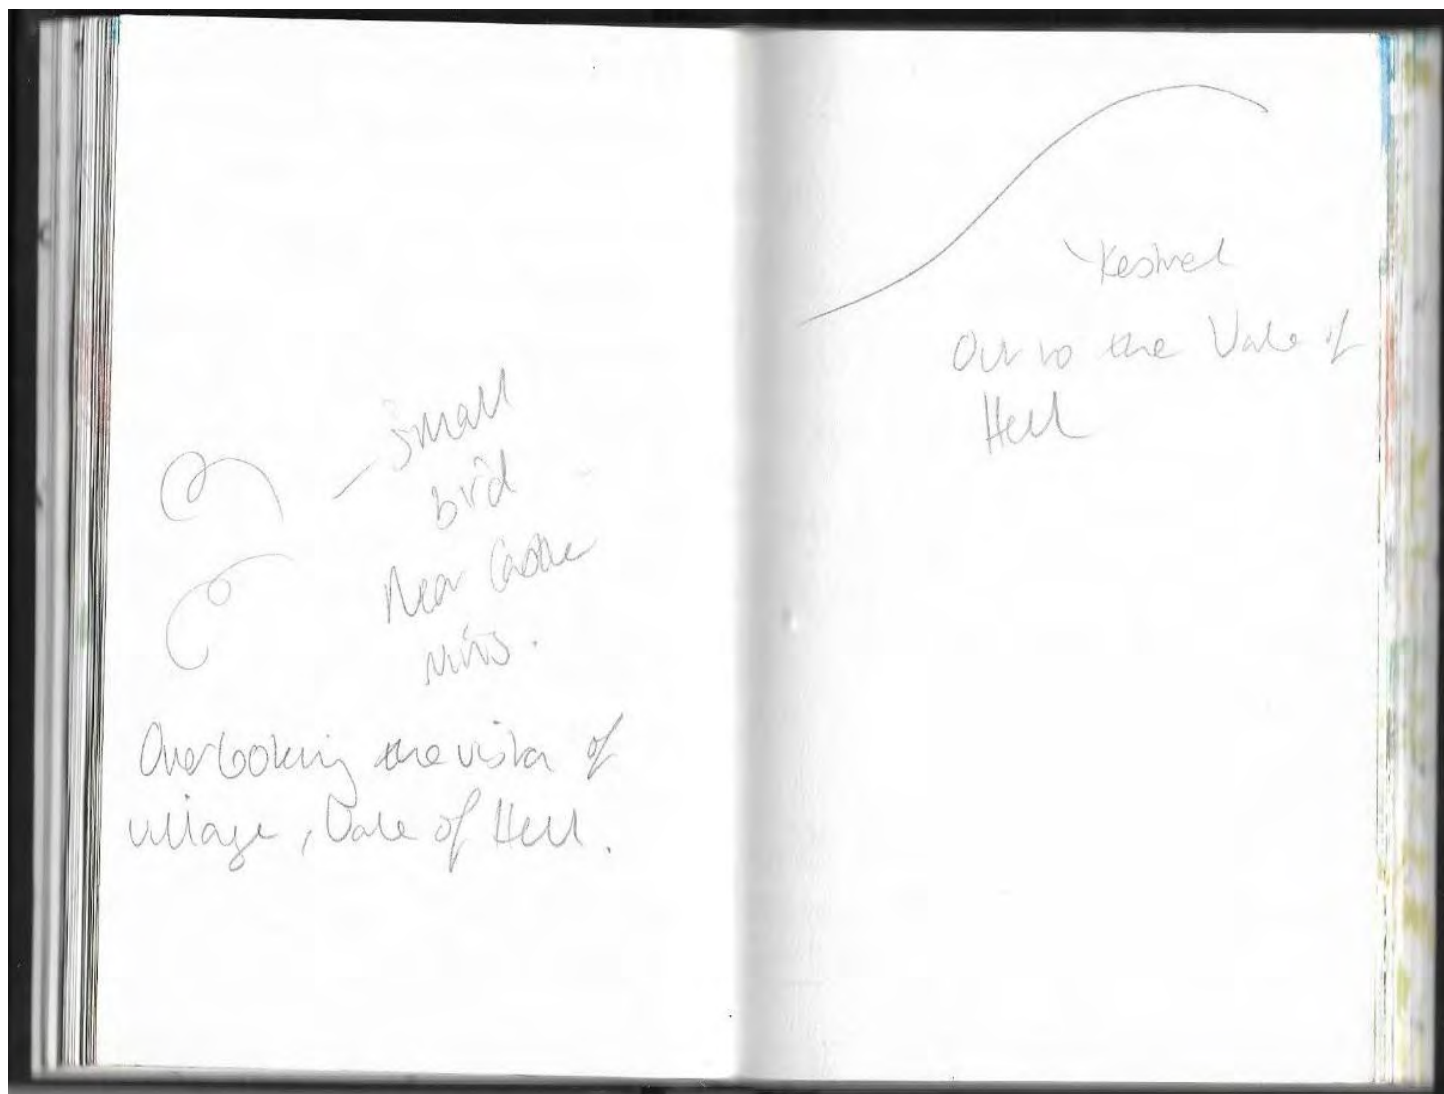 small
bird
Near Castle
ruins.
Overlooking the vista of
village, Vale of Hell.
Kestrel
Out to the Vale of
Hell